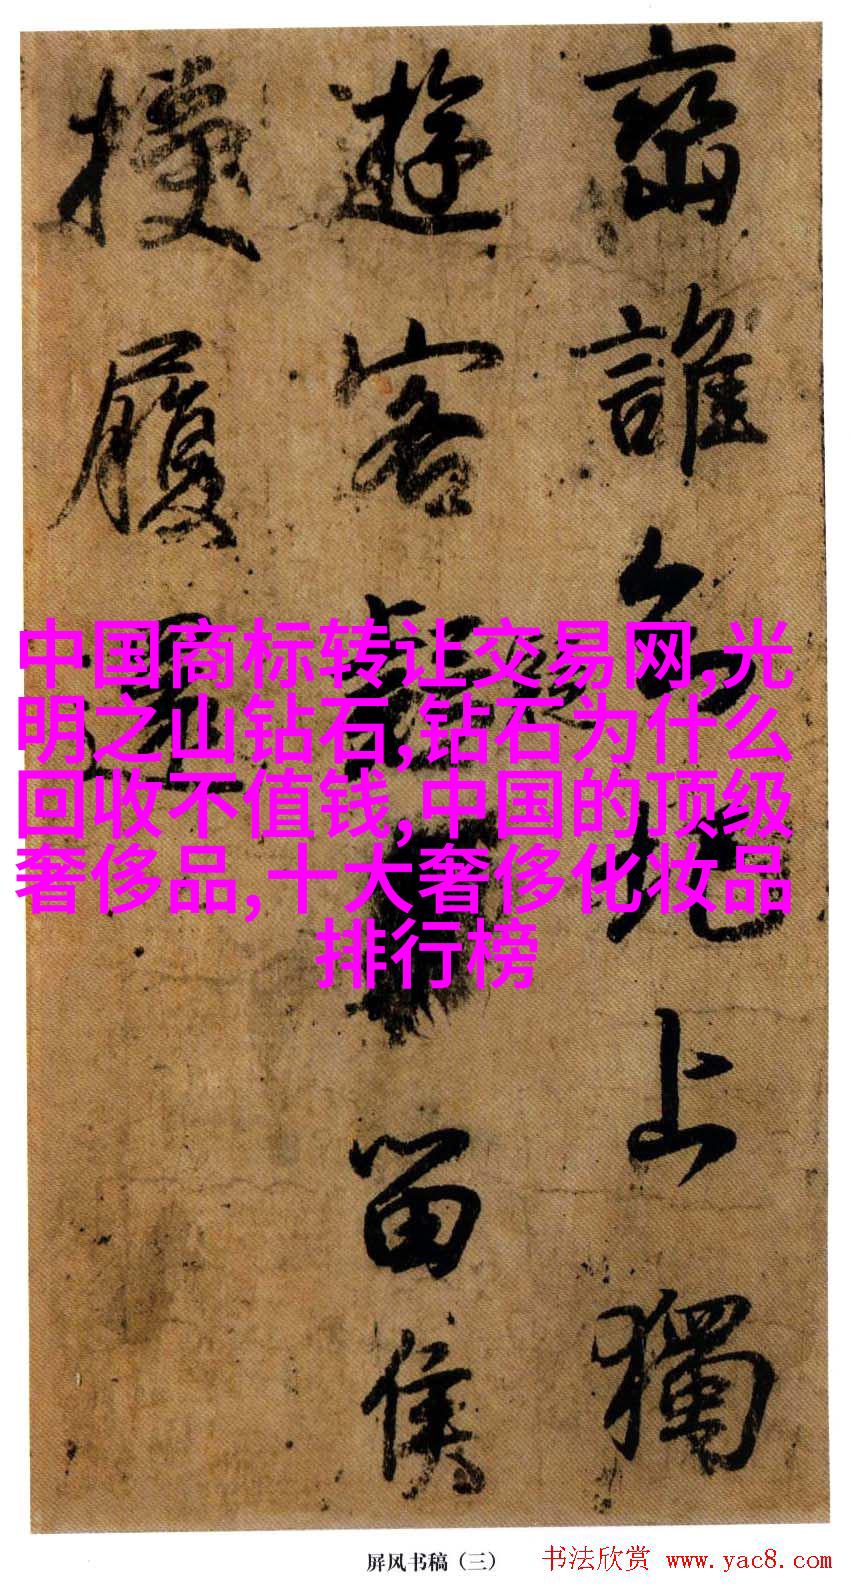 峦誰知圯上獨
遊客
留侯
履還
中国商标转让交易网,光
明之山钻石,钻石为什么
回收不值钱,中国的顶级
奢侈品,十大奢侈化妆品
排行榜
屏风书稿（三）
书法欣赏 www.yac8.com